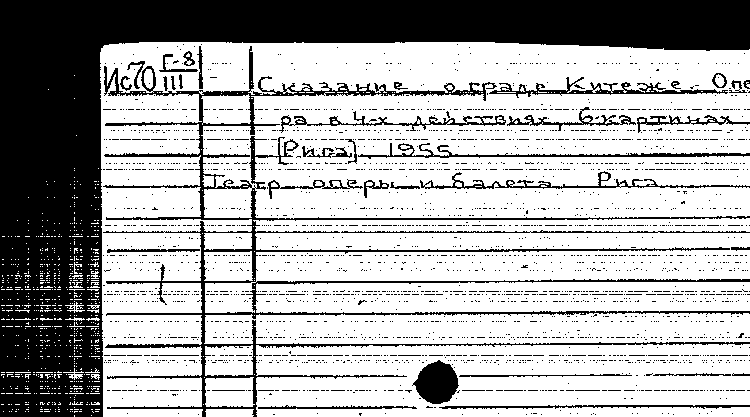 Ис70 Г-8
III
Сказание о граде Китеже. Опе
ра в 4-х действиях, 6 картинах
[Рига] 1955
Театр оперы и балета. Рига